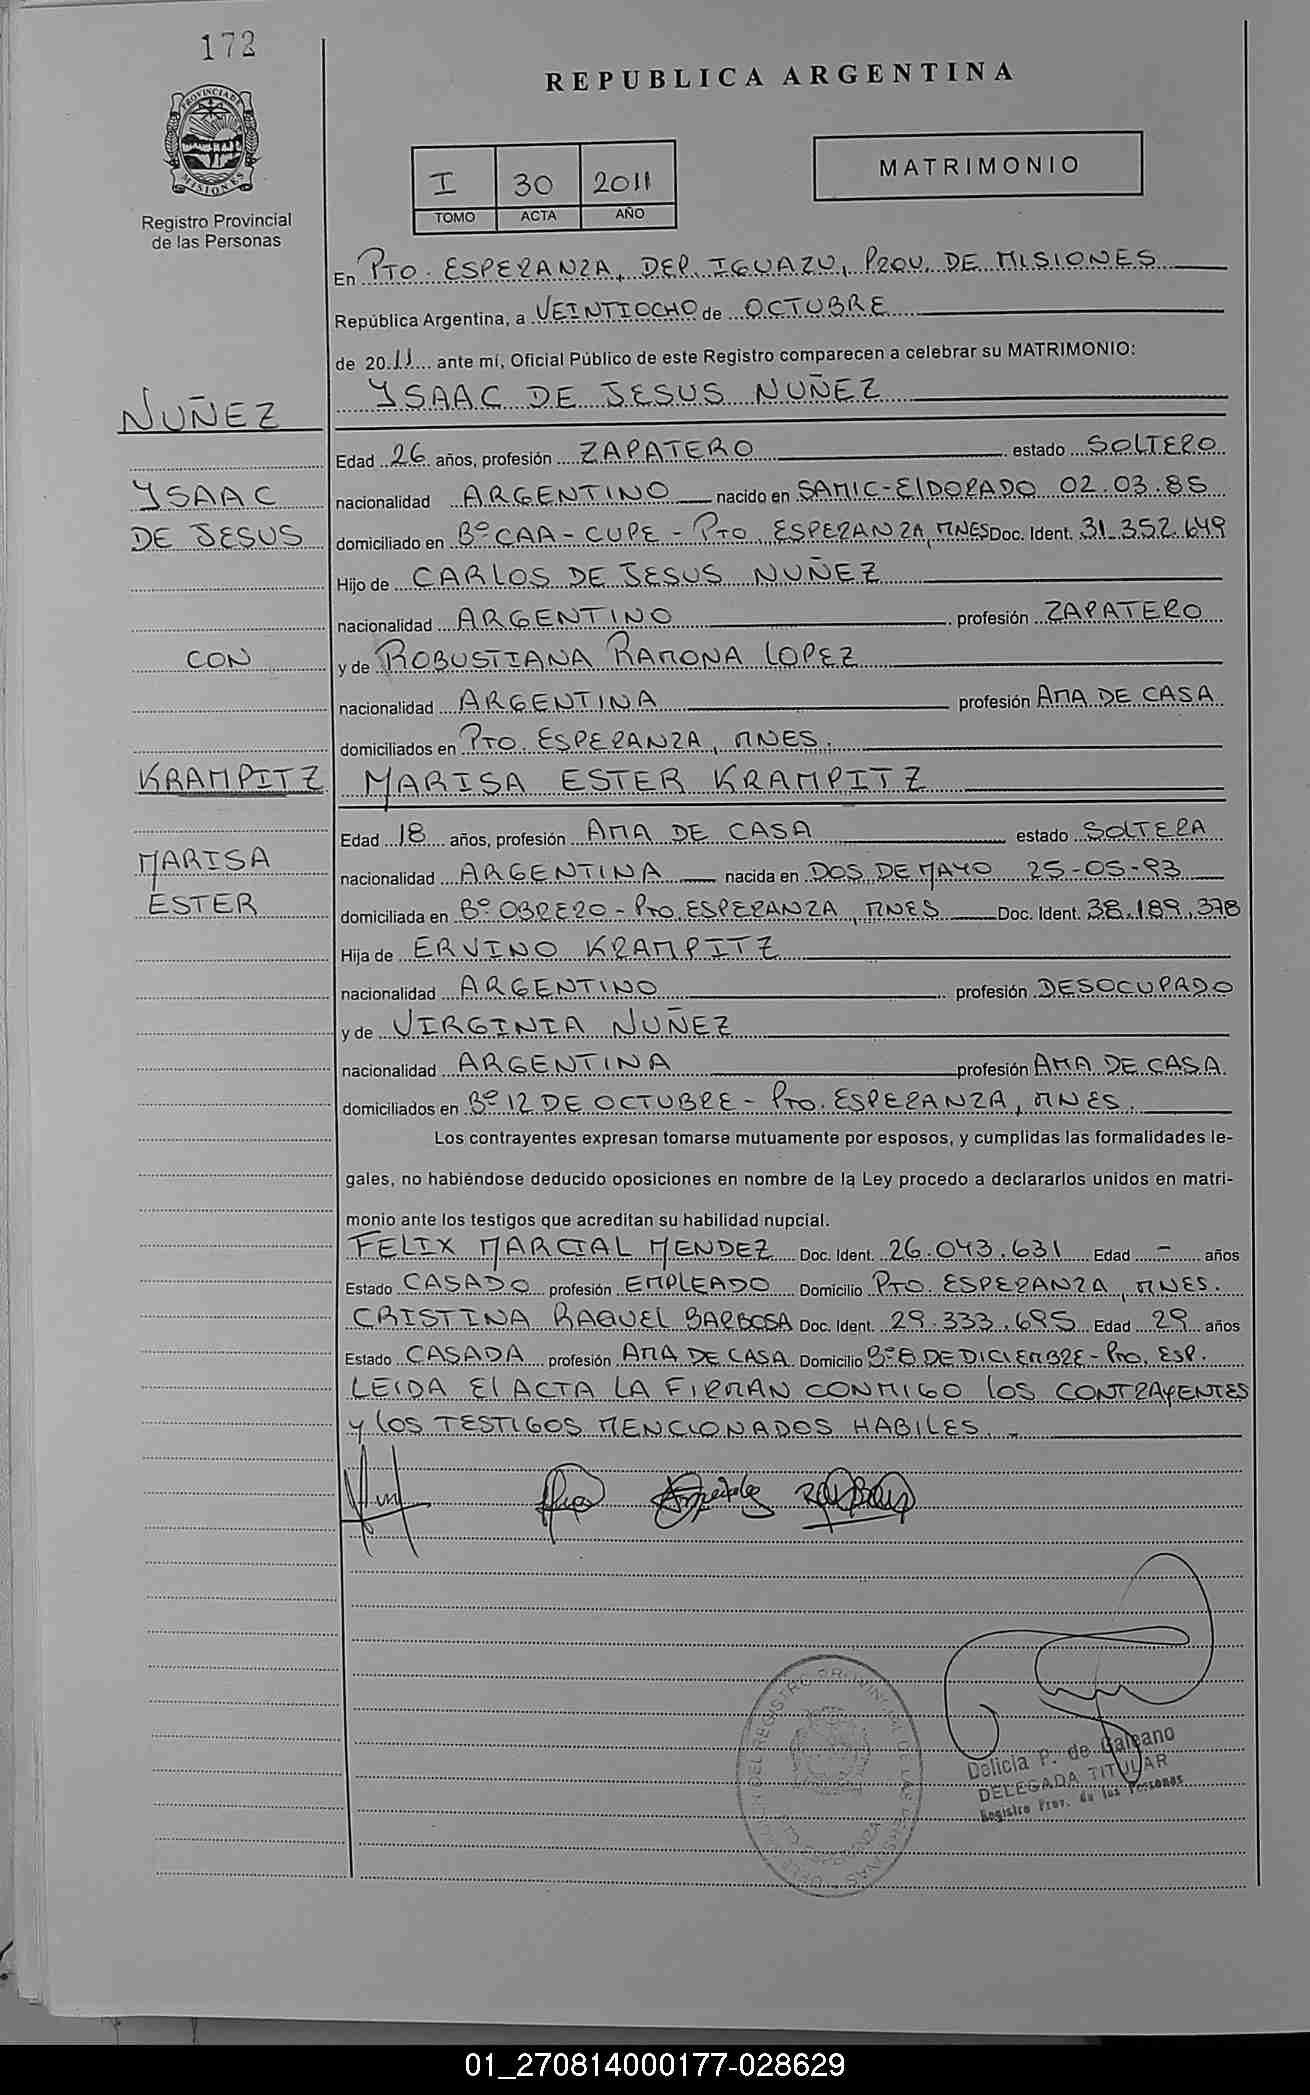 172
REPUBLICA ARGENTINA
PROVINCIA DE
MISIONES
Registro Provincial
de las Personas
I 30 2011
TOMO ACTA AÑO
MATRIMONIO
En PTO. ESPERANZA, DEP. IGUAZU, PROV. DE MISIONES
República Argentina, a VEINTIOCHO de OCTUBRE
de 2011 ante mí, Oficial Público de este Registro comparecen a celebrar su MATRIMONIO:
NUÑEZ YSAAC DE JESUS NUÑEZ
Edad 26 años, profesión ZAPATERO estado SOLTERO
YSAAC nacionalidad ARGENTINO nacido en SAMIC-ElDORADO 02.03.85
DE JESUS domiciliado en Bº CAA-CUPE - PTO. ESPERANZA, MNES Doc. Ident. 31.352.649
Hijo de CARLOS DE JESUS NUÑEZ
nacionalidad ARGENTINO profesión ZAPATERO
CON y de ROBUSTIANA RAMONA LOPEZ
nacionalidad ARGENTINA profesión AMA DE CASA
domiciliados en PTO. ESPERANZA, MNES.
KRAMPITZ MARISA ESTER KRAMPITZ
Edad 18 años, profesión AMA DE CASA estado SOLTERA
MARISA nacionalidad ARGENTINA nacida en DOS DE MAYO 25-05-93
ESTER domiciliada en Bº OBRERO - PTO. ESPERANZA, MNES Doc. Ident. 38.189.378
Hija de ERVINO KRAMPITZ
nacionalidad ARGENTINO profesión DESOCUPADO
y de VIRGINIA NUÑEZ
nacionalidad ARGENTINA profesión AMA DE CASA
domiciliados en Bº 12 DE OCTUBRE - PTO. ESPERANZA, MNES.
Los contrayentes expresan tomarse mutuamente por esposos, y cumplidas las formalidades le-
gales, no habiéndose deducido oposiciones en nombre de la Ley procedo a declararlos unidos en matri-
monio ante los testigos que acreditan su habilidad nupcial.
FELIX MARCIAL MENDEZ Doc. Ident. 26.043.631 Edad - años
Estado CASADO profesión EMPLEADO Domicilio PTO. ESPERANZA, MNES.
CRISTINA RAQUEL BARBOSA Doc. Ident. 29.333.695 Edad 29 años
Estado CASADA profesión AMA DE CASA Domicilio Bº 8 DE DICIEMBRE - PTO. ESP.
LEIDA El ACTA LA FIRMAN CONMIGO los CONTRAYENTES
y los TESTIGOS MENCIONADOS HABILES. -
Delicia P. de Galeano
DELEGADA TITULAR
Registro Prov. de las Personas
01_270814000177-028629